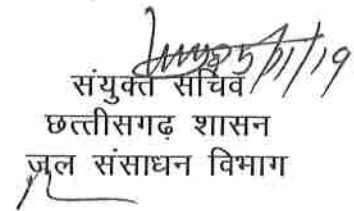 25/01/19
संयुक्त सचिव
छत्तीसगढ़ शासन
जल संसाधन विभाग